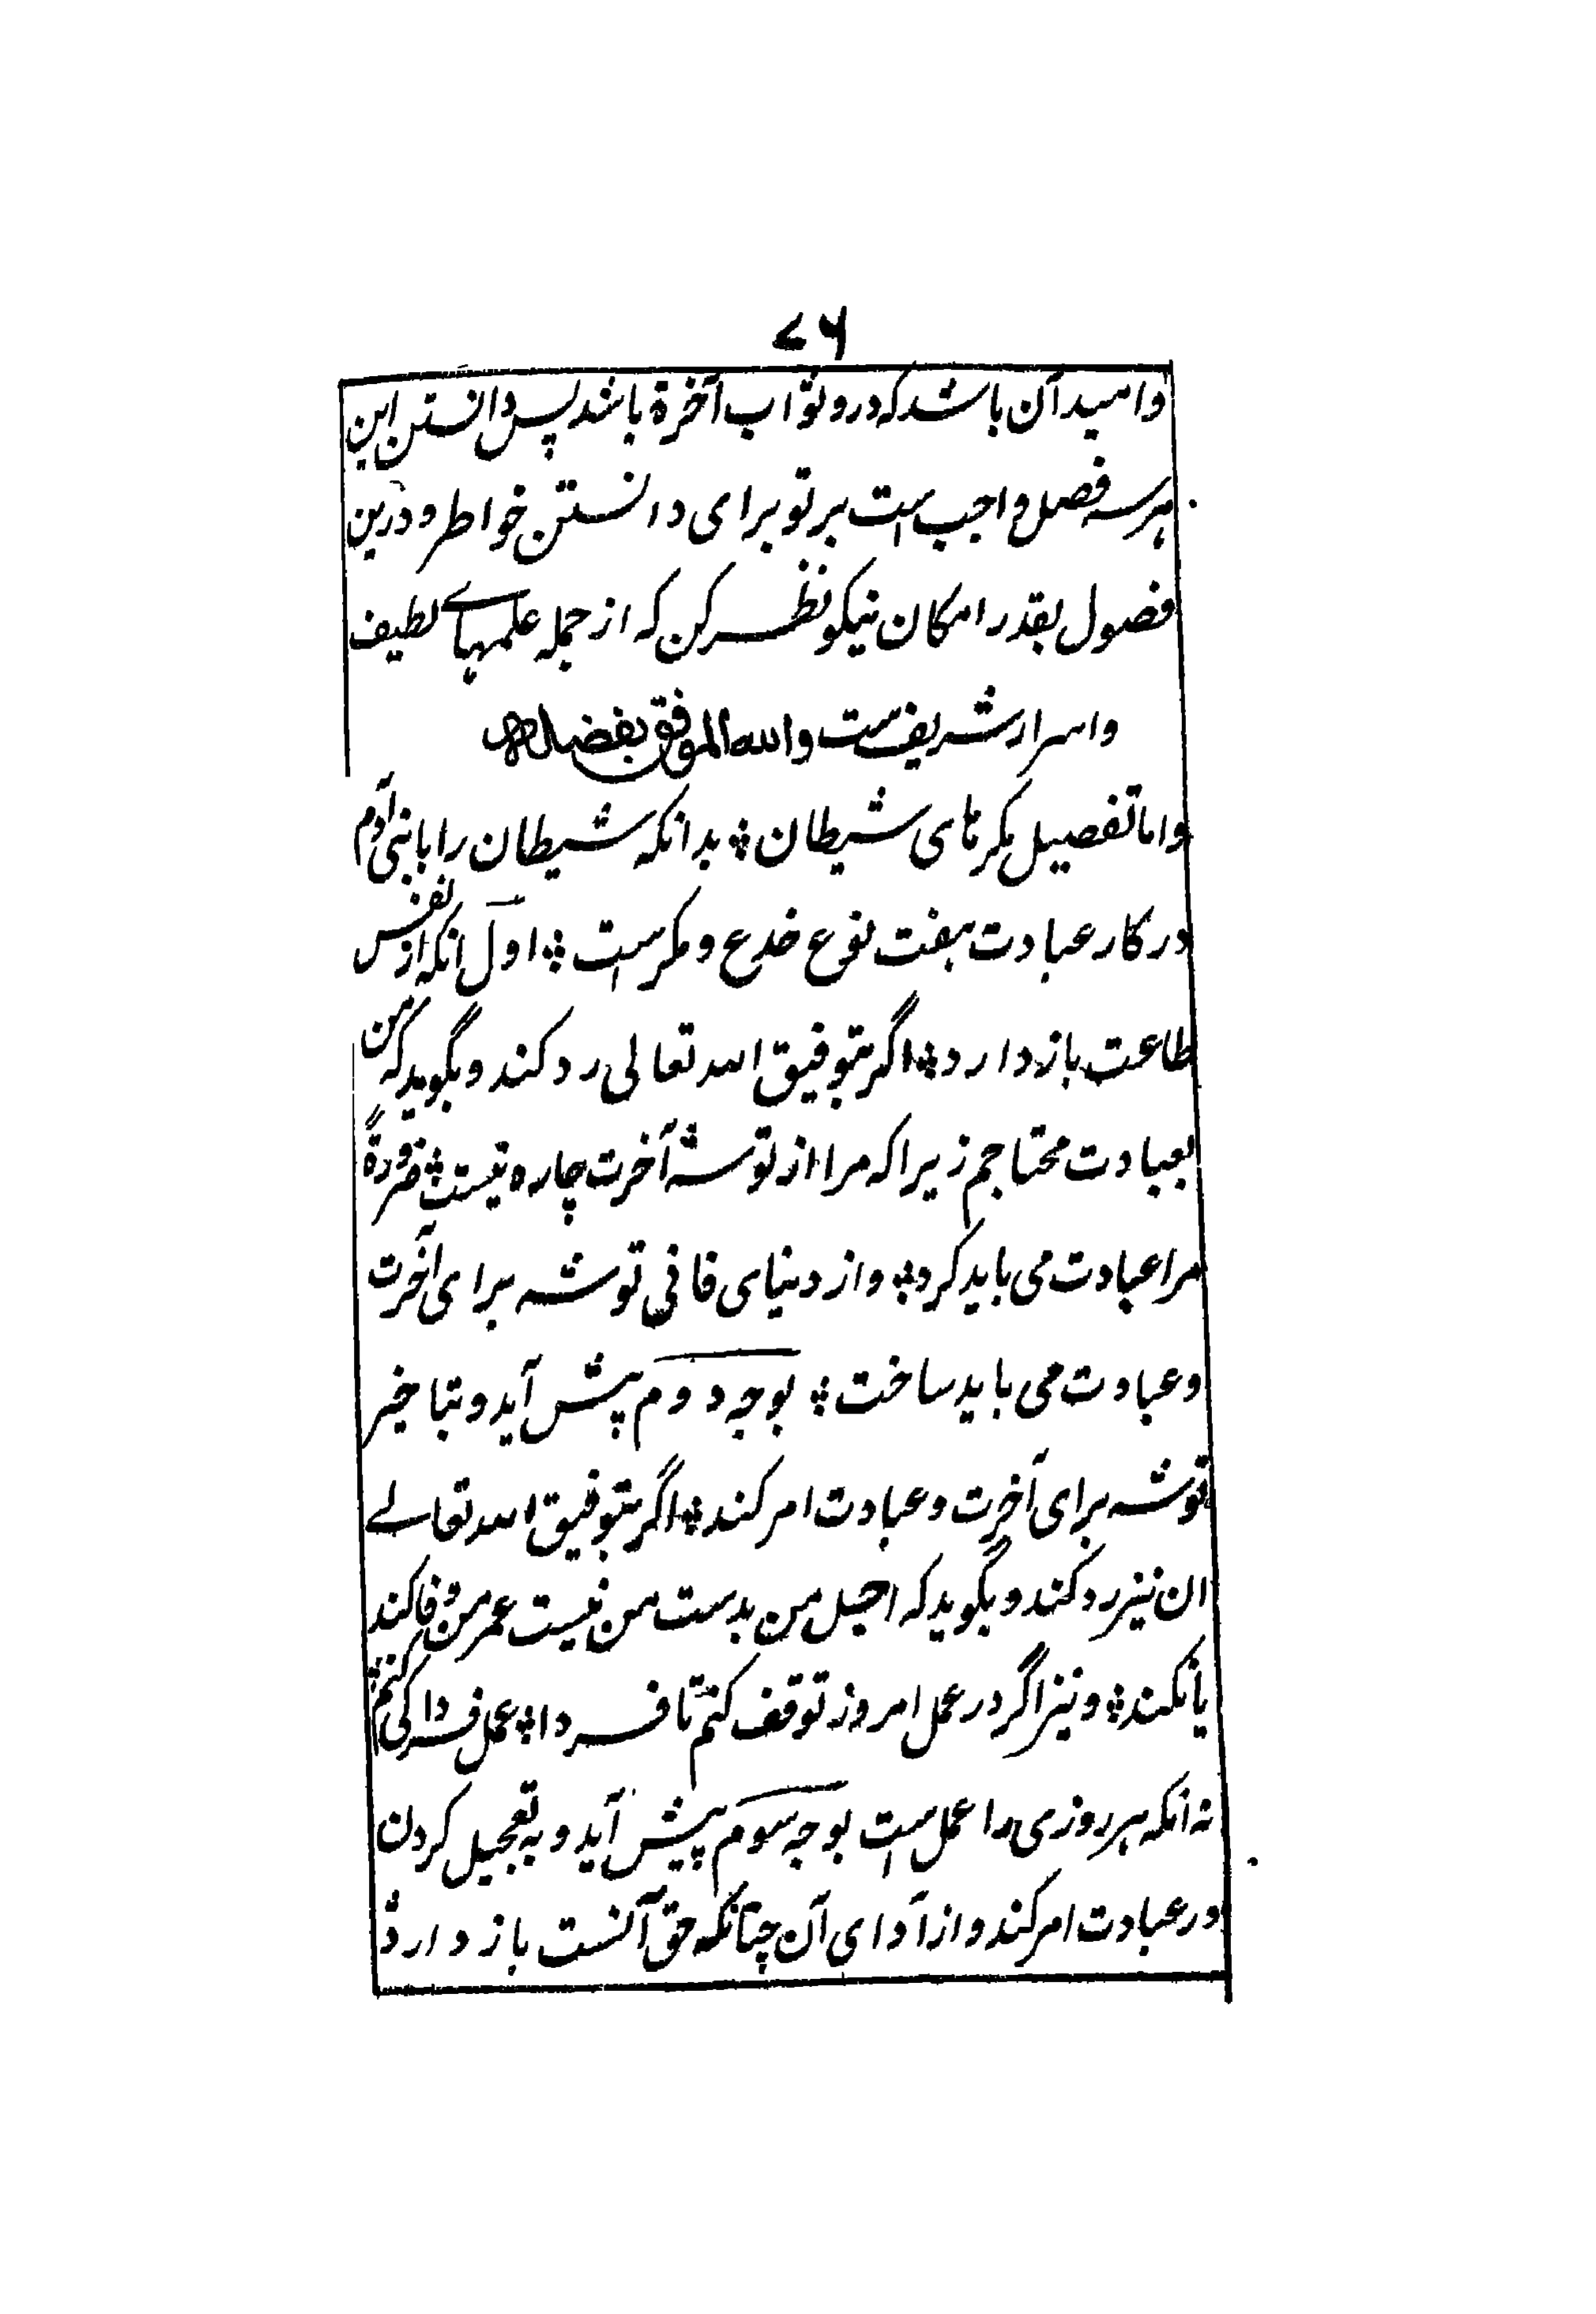 ۷۶
وامید آن باشد که درو ثواب آخرة باشد پس دانستن این
هر سه فصل واجب است بر تو برای دانستن خواطر و درین
فصول بقدر امکان نیکو نظر کن که از جمله علمهاے لطیف
واسرار شریف ست والله الموفق بفضله
واما تفصیل مکرهای شیطان ؞ بدانکه شیطان را با بنی آدم
در کار عبادت هفت نوع خدع و مکرست ؞ اول انکه از نفس
طاعت باز دارد ؞ اگر بتوفیق الله تعالی رد کند و بگوید که من
بعبادت محتاجم زیرا که مرا از توشه آخرت چاره نیست ؞ ضرورةً
مرا عبادت می باید کرد ؞ و از دنیای فانی توشه برای آخرت
و عبادت می باید ساخت ؞ بوجه دوم پیش آید و بتاخیر
توشه برای آخرت و عبادت امر کند ؞ اگر بتوفیق الله تعالے
ان نیز رد کند و بگوید که اجل من بدست من نیست عمر من وفا کند
یا نکند ؞ و نیز اگر در عمل امروز توقف کنم تا فردا ؞ عمل فردا کی کنم
نه انکه هر روزی را عمل است بوجه سوم پیش آید و به تعجیل کردن
در عبادت امر کند و از آدای آن چنانکه حق آنست باز دارد